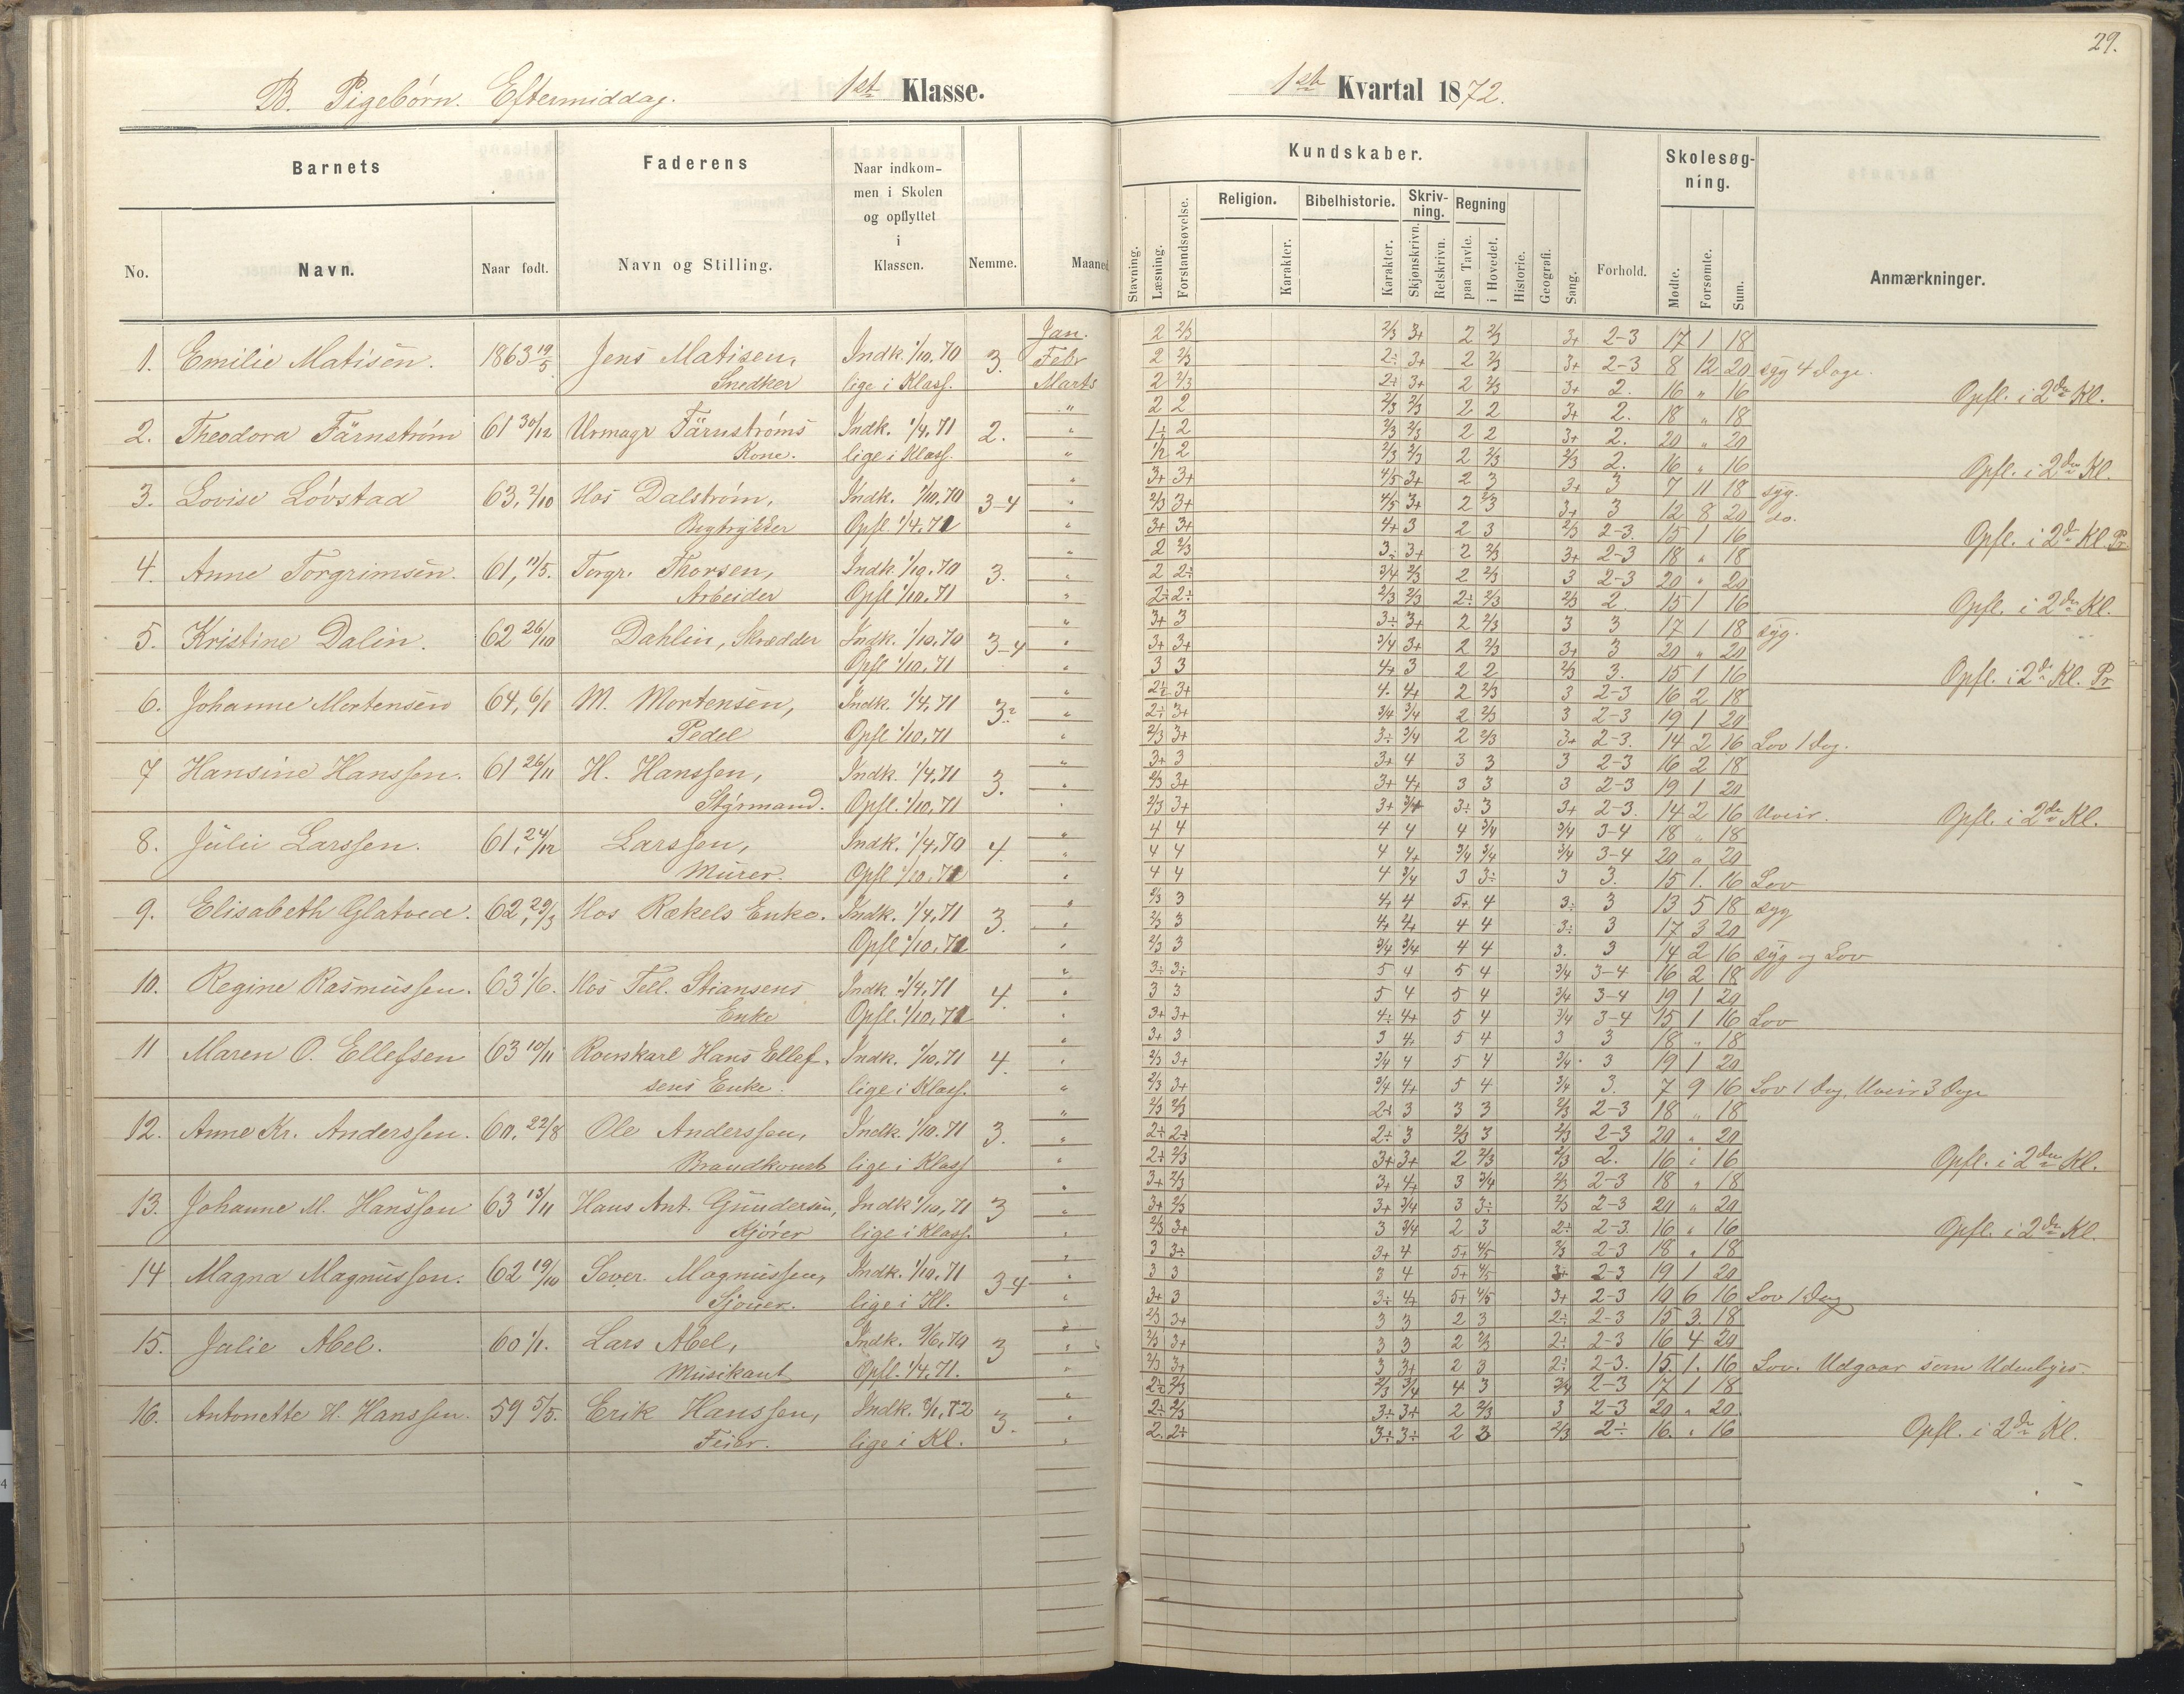 29.
B. Pigebørn. Eftermiddag. 1ste Klasse. 1ste Kvartal 1872.
Barnets Faderens Naar indkommen i Skolen og opflyttet i Klassen. Kundskaber. Skolesøgning.
No. Navn. Naar født. Navn og Stilling. Nemme. Maaned
Stavning. Læsning. Forstandsøvelse. Religion. Karakter. Bibelhistorie. Karakter. Skrivning. Skjønskrivn. Retskrivn. Regning paa Tavle. i Hovedet. Historie. Geografi. Sang. Forhold. Mødte. Forsømte. Sum. Anmærkninger.
Jan. 2 2/3 2/3 3+ 2 2/3 3+ 2-3 17 1 18
1. Emilie Matisen. 1863 19/5 Jens Matisen, Indk. 1/10, 70 3. Febr 2 2/3 2÷ 3+ 2 2/3 3+ 2-3 8 12 20 syg 4 Dage.
Snedker lige i Klass. Marts 2 2/3 2÷ 3+ 2 2/3 3+ 2. 16 " 16 Opfl. i 2den Kl.
" 2 2 2/3 2/3 2 2 3+ 2. 18 " 18
2. Theodora Färnstrøm 61 30/12 Urmagr Färnstrøms Indk. 1/4, 71 2. " 1÷ 2 2/3 2/3 2 2 3+ 2. 20 " 20
Kone. lige i Klass. " 1/2 2 2/3 2/3 2 2/3 2/3 2. 16 " 16 Opfl. i 2den Kl.
" 3+ 3+ 4/5 3+ 2 3 3+ 3 7 11 18 syg.
3. Lovise Løvstad 63, 2/10 Hos Dalstrøm, Indk. 1/10, 70 3-4 " 2/3 3+ 4/5 3+ 2 2/3 3+ 3 12 8 20 do.
Bogtrykker Opfl. 1/4, 71 " 3+ 3+ 4+ 3 2 3 2/3 2-3. 15 1 16 Opfl. i 2den Kl. Pr.
" 2 2/3 3÷ 3+ 2 2/3 3+ 2-3 18 " 18
4. Anne Torgrimsen. 61, 11/5. Torgr. Thorsen, Indk. 1/10, 70 3. " 2 2÷ 3/4 2/3 2 2/3 3 2-3 20 " 20
Arbeider Opfl. 1/10, 71 " 2÷ 2÷ 2/3 2/3 2÷ 2/3 2/3 2. 15 1 16 Opfl. i 2den Kl.
" 3+ 3 3÷ 3+ 2 2/3 3 3 17 1 18 syg.
5. Kristine Dalin. 62 26/10 Dahlin, Skrædder Indk. 1/10, 70 3-4 " 3+ 3+ 3/4 3+ 2 2/3 3+ 3 20 " 20
Opfl. 1/10, 71 " 3 3 4+ 3 2 2 2/3 3. 15 1 16 Opfl. i 2den Kl. Pr
" 2÷ 3+ 4. 4+ 2 2/3 3 2-3 16 2 18
6. Johanne Mortensen 64, 6/1 M. Mortensen, Indk. 1/4, 71 3. " 2÷ 3+ 3/4 3/4 2 2/3 3 2-3 19 1 20
Pedel Opfl. 1/10, 71 " 2/3 3+ 3÷ 3/4 2 2/3 3+ 2-3. 14 2 16 Lov 1 Dag.
" 3+ 3 3+ 4 3 3 3 2-3 16 2 18
7 Hansine Hanssen. 61 26/11 H. Hanssen, Indk. 1/4, 71 3. " 2/3 3+ 3+ 4+ 3 3 3 2-3 19 1 20
Styrmand. Opfl. 1/10, 71 " 2/3 3+ 3+ 3/4 3÷ 3 3+ 2-3. 14 2 16 Uveir. Opfl. i 2den Kl.
" 4 4 4 4 4 3/4 3/4 3-4 18 " 18
8. Julie Larssen. 61, 24/12 Larssen, Indk. 1/4, 70 4. " 4 4 4 4+ 3/4 3/4 3/4 3-4 20 " 20
Murer. Opfl. 1/10, 71 " 4 4 4 3/4 3 3÷ 3 3. 15 1. 16 Lov
" 2/3 3 4+ 4 5+ 4 3÷ 3 13 5 18 syg
9. Elisabeth Glatved. 62, 29/3 Hos Rækels Enke. Indk. 1/4, 71 3. " 2/3 3 4+ 4+ 4 4 3÷ 3 17 3 20
Opfl. 1/10, 71 " 2/3 3 3/4 3/4 4 4 3. 3 14 2 16 syg og Lov
" 3÷ 3÷ 5 4 5 4 3/4 3-4 16 2 18
10. Regine Rasmussen. 63 1/6. Hos Tell. Stiansens Indk. 1/4, 71 4. " 3 3 5 4 5 4 3/4 3-4 19 1 20
Enke Opfl. 1/10, 71 " 3+ 3+ 4÷ 4+ 5 4 3/4 3-4 15 1 16 Lov
" 3+ 3 3 4+ 5 4 3 3 18 " 18
11 Maren O. Ellefsen 63 10/11 Rorskarl Hans Ellef- Indk. 1/10, 71 4. " 2/3 3+ 3/4 4 5 4 3/4 3 19 1 20
sens Enke. lige i Klass. " 2/3 3+ 3/4 4+ 5 4 3/4 3. 7 9 16 Lov 1 Dag, Uveir 3 Dage
" 2/3 2/3 2÷ 3 3 3 2/3 2-3 18 " 18
12. Anne Kr. Anderssen. 60, 22/8 Ole Anderssen, Indk. 1/10, 71 3. " 2÷ 2÷ 2÷ 3 2/3 3 2/3 2-3 20 " 20
Brandkonst lige i Klass " 2÷ 2/3 3+ 3+ 2 2/3 2/3 2. 16 " 16 Opfl. i 2den Kl.
" 3+ 2/3 3+ 4+ 3 3/4 2/3 2-3 18 " 18
13. Johanne M. Hanssen 63 13/11 Hans Ant. Gundersen, Indk 1/10, 71 3 " 3+ 2/3 3+ 3/4 3 3÷ 2/3 2-3 20 " 20
Kjører lige i Klass. " 2/3 3+ 3 3/4 2 3 2÷ 2-3. 16 " 16 Opfl. i 2den Kl.
" 3 3÷ 3+ 4 5+ 4/5 2/3 2-3 18 " 18
14 Magna Magnussen. 62 19/10 Sever. Magnussen, Indk. 1/10, 71 3-4 " 3 3 3 4 5+ 4/5 3+ 2-3 19 1 20
Sjouer. lige i Kl. " 3+ 3 3÷ 4+ 5+ 4/5 3+ 2-3 10 6 16 Lov 1 Dag
" 2/3 3+ 3 3 2 3 2÷ 2-3 15 3. 18
15. Julie Abel. 60 1/1. Lars Abel, Indk. 9/6, 70 3 " 2/3 3+ 3 3 2 2/3 2÷ 2-3 16 4 20
Musikant Opfl. 1/4, 71. " 2/3 3+ 3 3+ 2 3 2÷ 2-3. 15 1. 16 Lov. Udgaar som Udenbyes-
" 2÷ 2/3 2/3 3/4 4 3 3/4 2-3 17 1 18
16. Antonette H. Hanssen. 59 5/5. Erik Hanssen, Indk. 8/1, 72 3. " 2÷ 2/3 3÷ 3+ 2 2/3 3 2-3 20 " 20
Feier. lige i Kl. " 2. 2÷ 3÷ 3÷ 2 3 2/3 2÷ 16. " 16 Opfl. i 2den Kl.